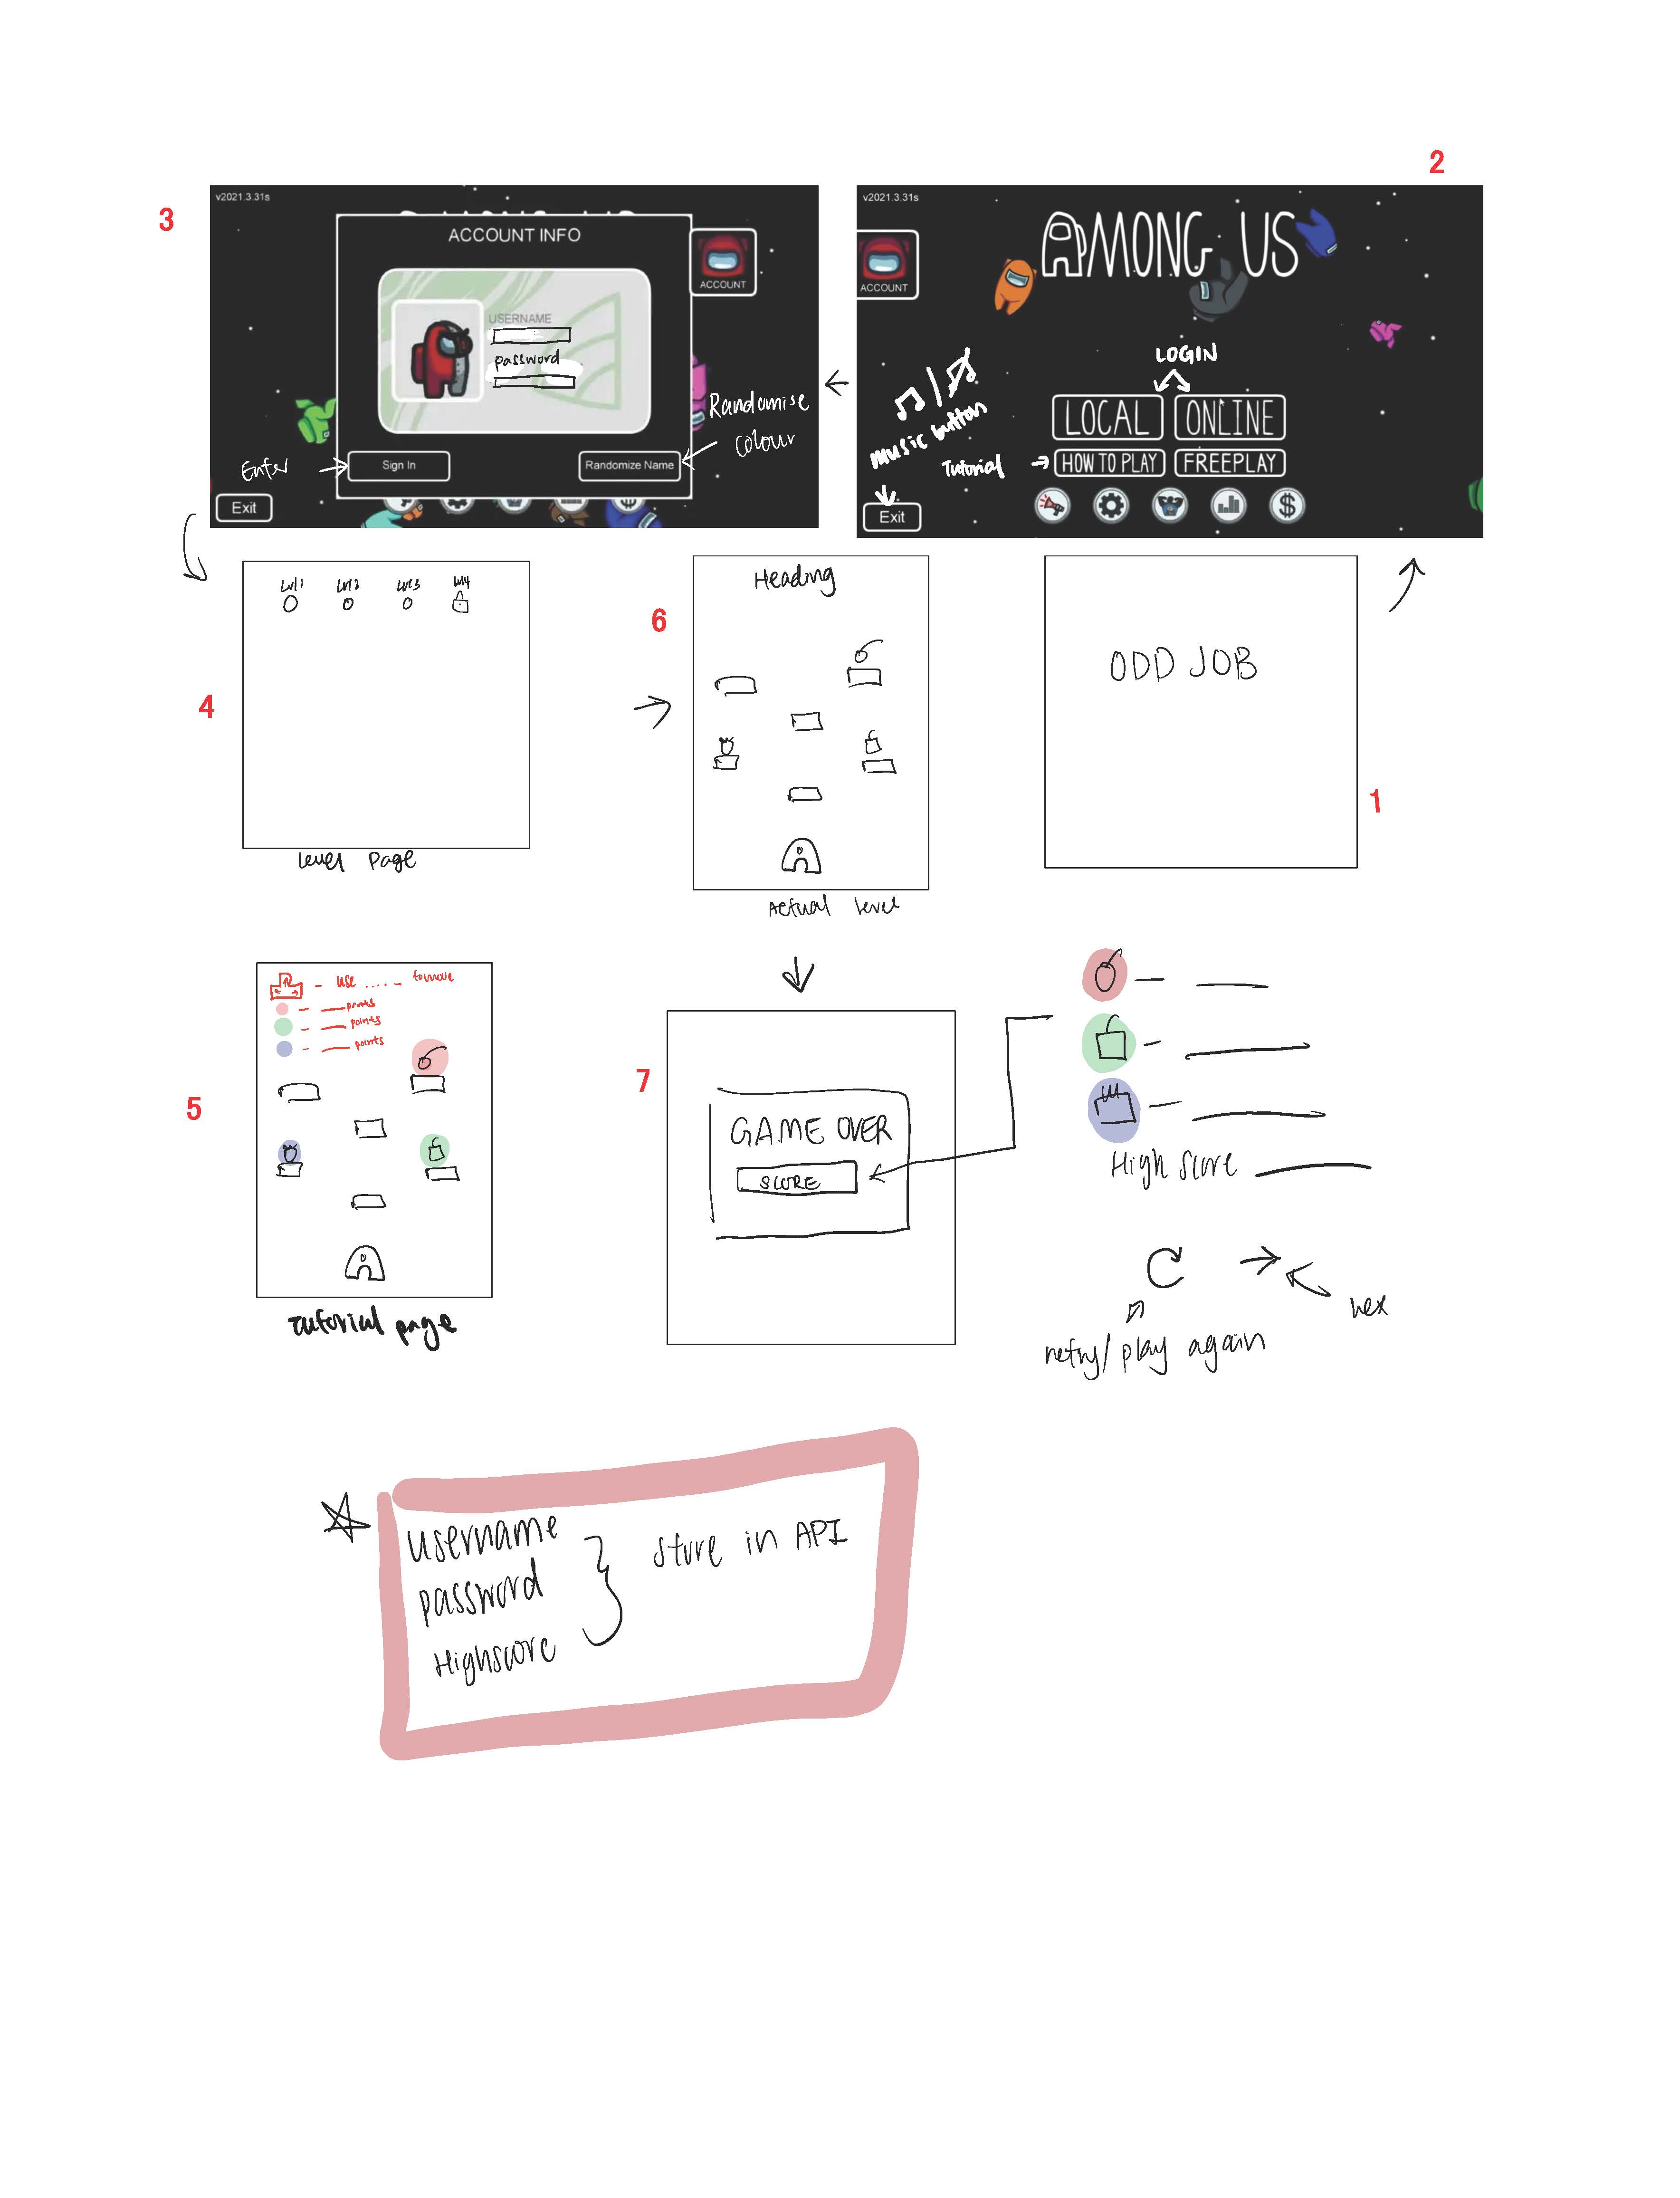 2
3
v2021.3.31s
ACCOUNT INFO
USERNAME
password
ACCOUNT
Randomise
colour
Enter
Sign In
Randomize Name
Exit
v2021.3.31s
AMONG US
ACCOUNT
LOGIN
music button
LOCAL
ONLINE
Tutorial
HOW TO PLAY
FREEPLAY
$
Exit
4
Lvl1
Lvl2
Lvl3
Lvl4
Level Page
6
Heading
Actual level
ODD JOB
1
5
- use ..... to move
- points
- points
- points
Tutorial page
7
GAME OVER
SCORE
High Score
retry/play again
nex
username
password
Highscore
store in API